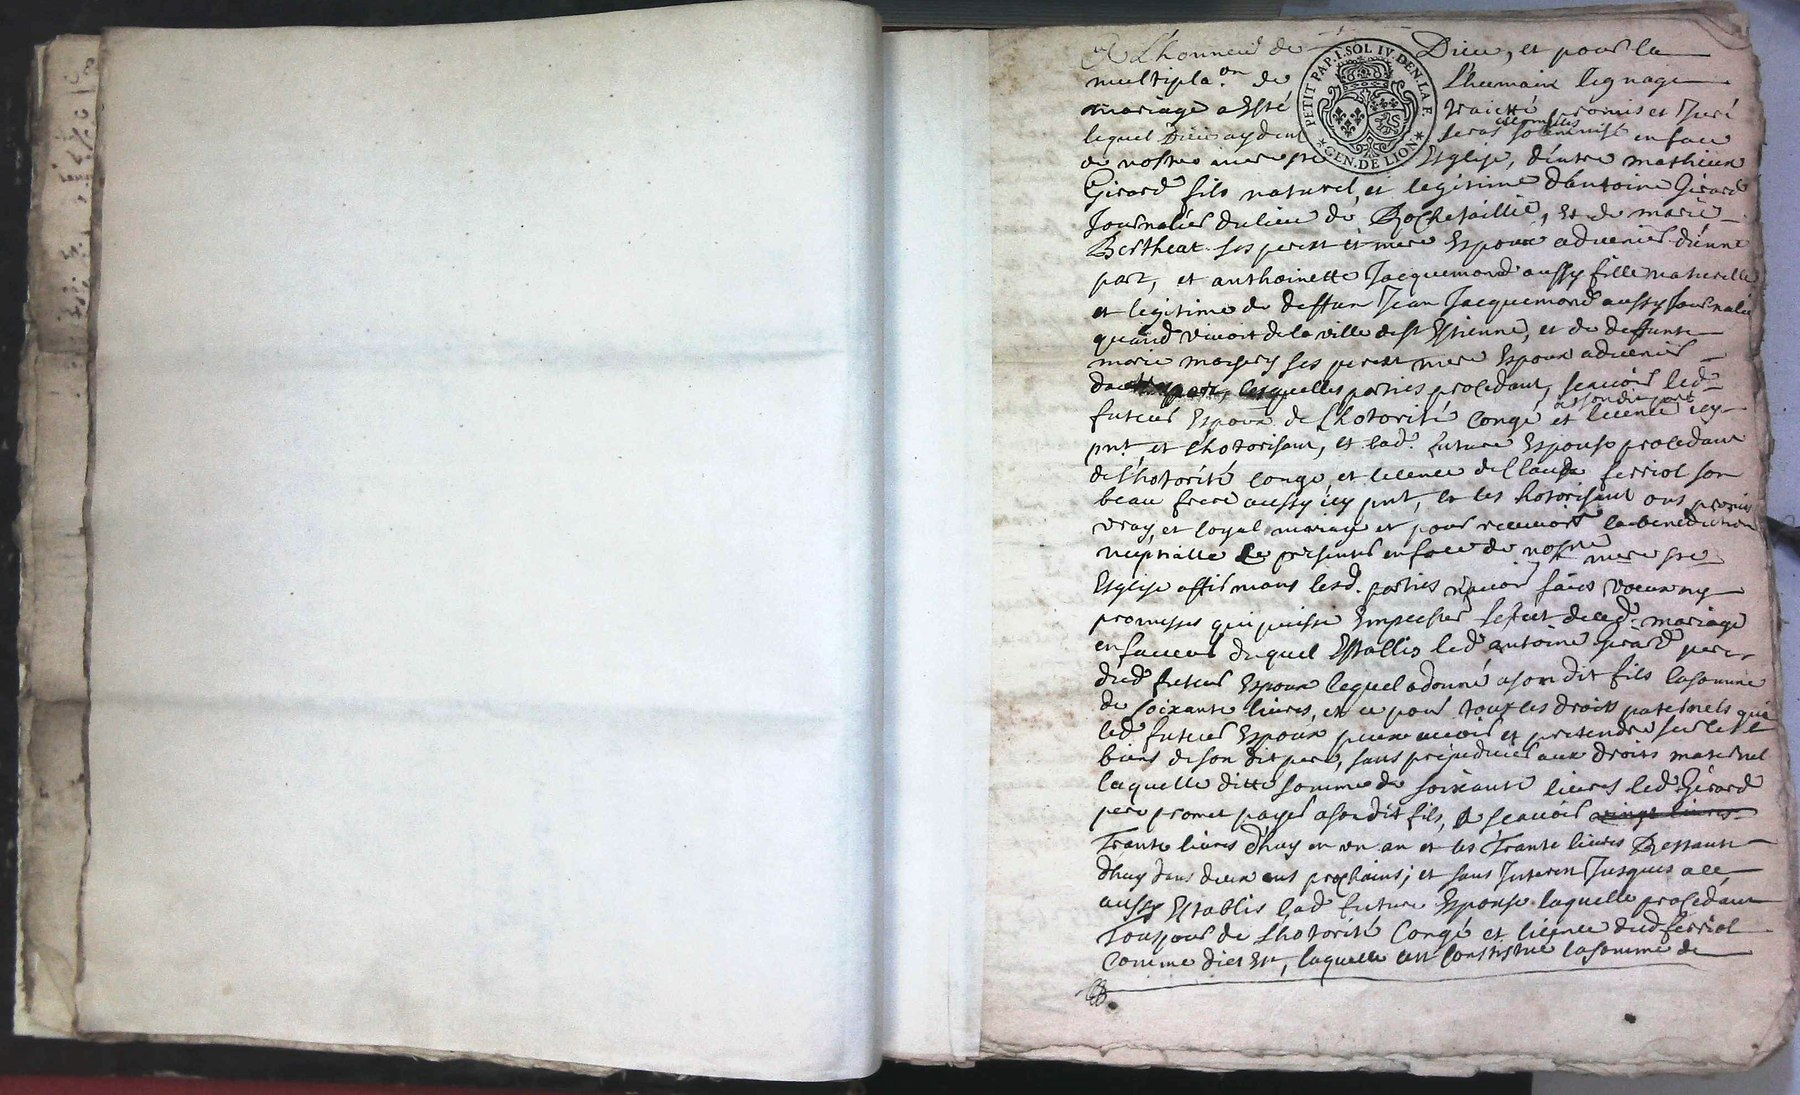 A L'honneur de Dieu, et pour la
PETIT PAP. 1. SOL IV. DEN. LA F.
GEN. DE LION
multipla.on de L'humain lignage
mariage a esté traitté promis et Juré
lequel Dieu aydant seras solemnisé en face
accomplis
de nostre mere ste Esglise, d'entre mathieu
Girard fils naturel, et legitime d'Antoine Girard
Journalier du lieu de Rochetaillié, et de marie
Bertheat ses pere et mere Espoux advenir d'une
part, et anthoinette Jacquemond aussy fille naturelle
et legitime de deffun Jean Jacquemond aussy Journalié
quand vivoit de la ville de st Estienne, et de deffunte
marie ses pere et mere Espoux advenir
part, lesquelles parties procedant, scavoir led.
futeur Espoux de Lhotorité congé et licence icy
de son dit pere
pnt et Lhotorisant, et lad. future Espouse procedant
de Lhotorité congé, et licence de Claude ferriol son
beau frere aussy icy pnt, et les hotorisant ont promis
vray, et loyal mariage et pour recevoir la benediction
nuptialle se presenter en face de nostre mere ste
Esglise affirmans lesd. parties n'avoir faict voeux ny
promesses qui puisse Empescher l'effect dud. mariage
en faveur duquel Establis led. antoine Girard pere
dud. futeur Espoux lequel a donné a son dit fils la somme
de soixante livres, et ce pour tous les droits paternels que
led. futeur Espoux puisse avoir et pretendre sur les
biens de son dit pere, sans prejudicier aux droits maternel
laquelle ditte somme de soixante livres led. Girard
pere promet payer a son dit fils, scavoir vingt livres
Trante livres d'huy en un an et les Trante livres Restante
d'huy dans deux ans prochains; et sans Interest Jusques a ce
aussy Establis lad. future Espouse laquelle procedant
Toujours de Lhotorité Congé et licence dud. ferriol
Comme dict est, laquelle cest Constitué la somme de